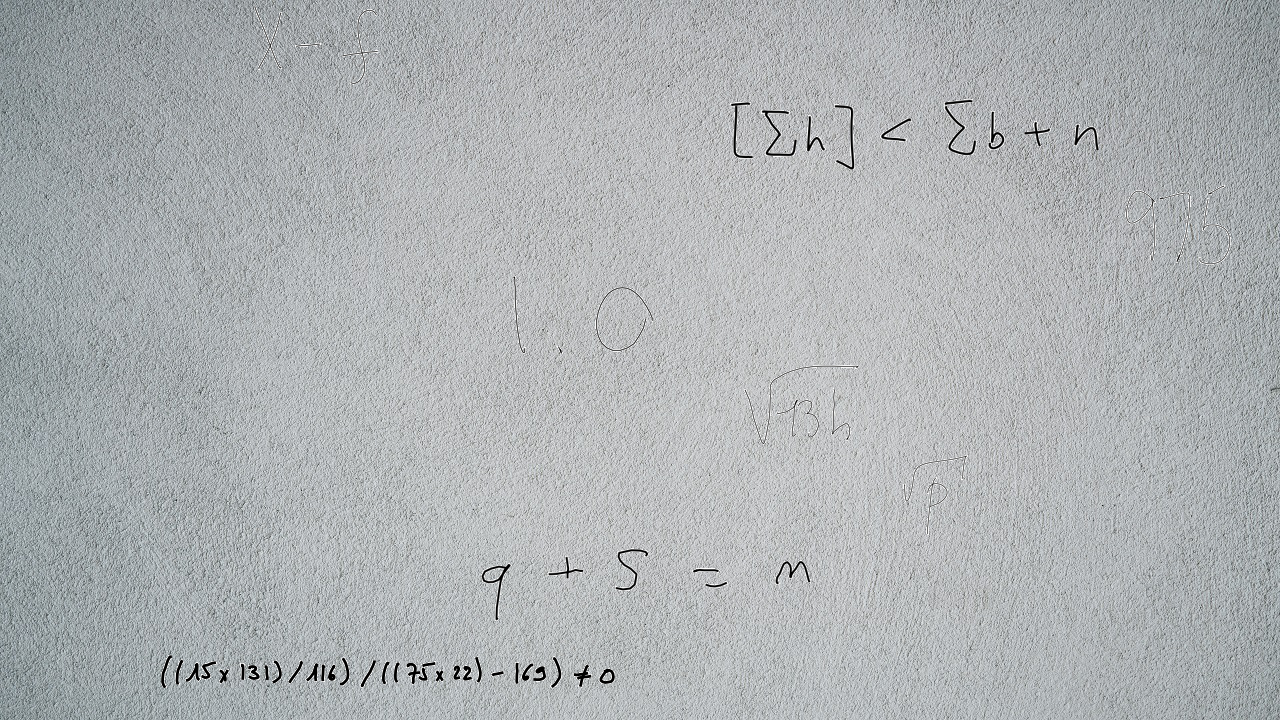 X - f
[∑h] < ∑b + n
975
1.0
√13h
√p
q + S = m
((15x131)/116)/((75x22)-169)≠0